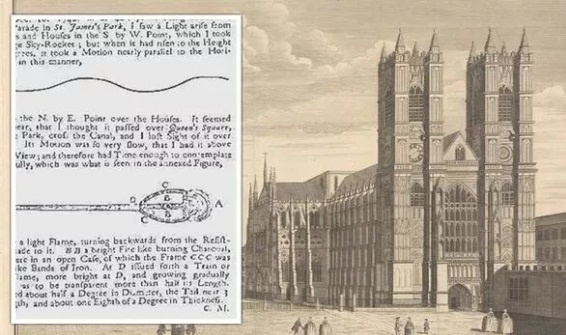 Parade in St. James's Park, I saw a Light arise from
s and Houses in the S. by W. Point, which I took
ge Sky-Rocket; but when it had risen to the Height
rees, it took a Motion nearly parallel to the Hori-
in this manner,
the N. by E. Point over the Houses. It seemed
ear, that I thought it passed over Queen's Square,
Park, cross the Canal, and I lost Sight of it over
Its Motion was so very slow, that I had it above
View; and therefore had Time enough to contemplate
ully, which was what is seen in the annexed Figure,
C
D B A
B
C
a light Flame, turning backwards from the Resist-
ade to it. BB a bright Fire like burning Charcoal,
ere in an open Case, of which the Frame CCC was
ike Bands of Iron. At D issued forth a Train or
lame, more bright at D, and growing gradually
as to be transparent more than half its Length.
d about half a Degree in Diameter, the Tail near 3
th, and about one Eighth of a Degree in Thickness.
C. M.